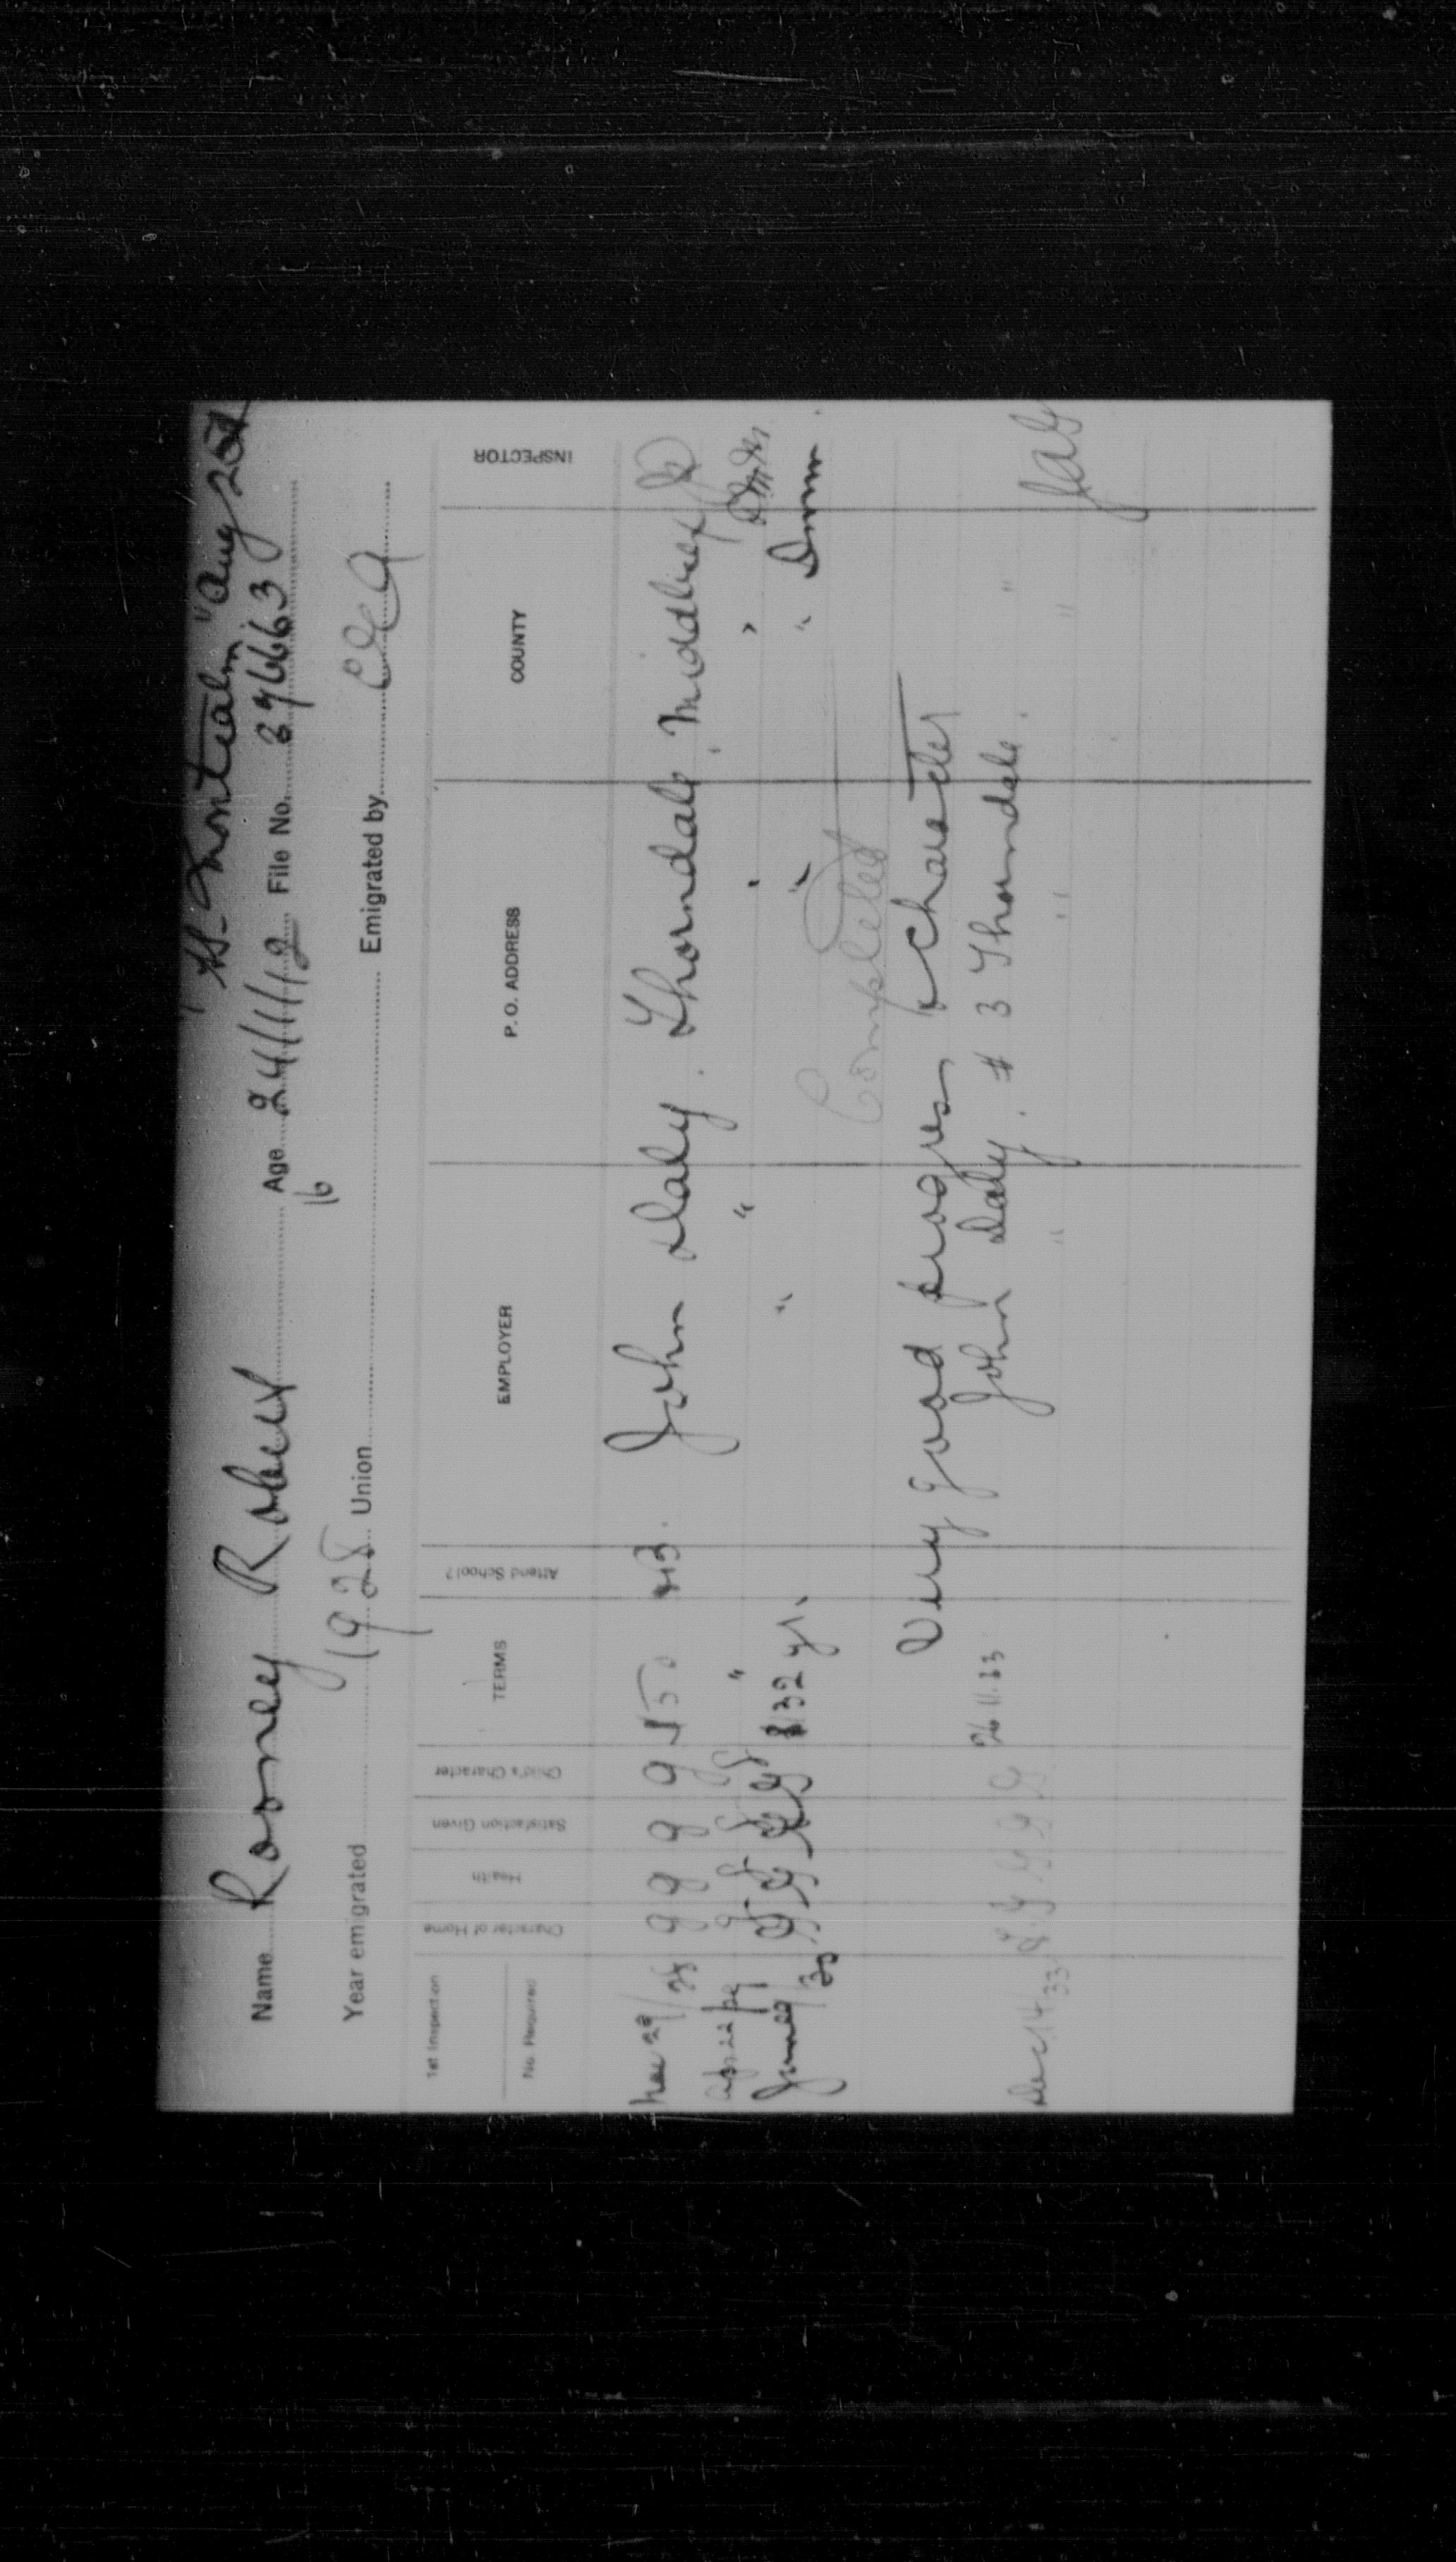 "Montcalm" Aug 25th
Name Rooney Robert Age 24/1/12 File No. 376663
16
Year emigrated 1928 Union Emigrated by CEA
1st Inspection
No. Required
Character of Home
Health
Satisfaction Given
Child's Character
TERMS
Attend School?
EMPLOYER
P. O. ADDRESS
COUNTY
INSPECTOR
28 g g g g John Daly. Thorndale, Middlesex
Apr. 22/29 g g g g " " " "
June 30 g g g g $132 yr. " " "
Completed
Very good progress & character
26.11.33 John Daly. # 3 Thorndale. "
Dec 14/33 g g g g " " "